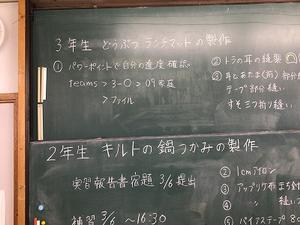 3年生 どうぶつ ランチマットの製作
① パワーポイントで自分の進度確認
teams > 3-0 > 09家庭
> ファイル
② トラの耳の縫製
③ 耳とあたま(前)部分
テープ部分縫い
すそ三つ折り縫い
2年生 キルトの鍋つかみの製作
実習報告書宿題 3/6 提出
補習 3/6 ~16:30
② 1cmアイロン
③ アップリケ布まち針
④ 〃 縫い
⑤ バイアステープ80